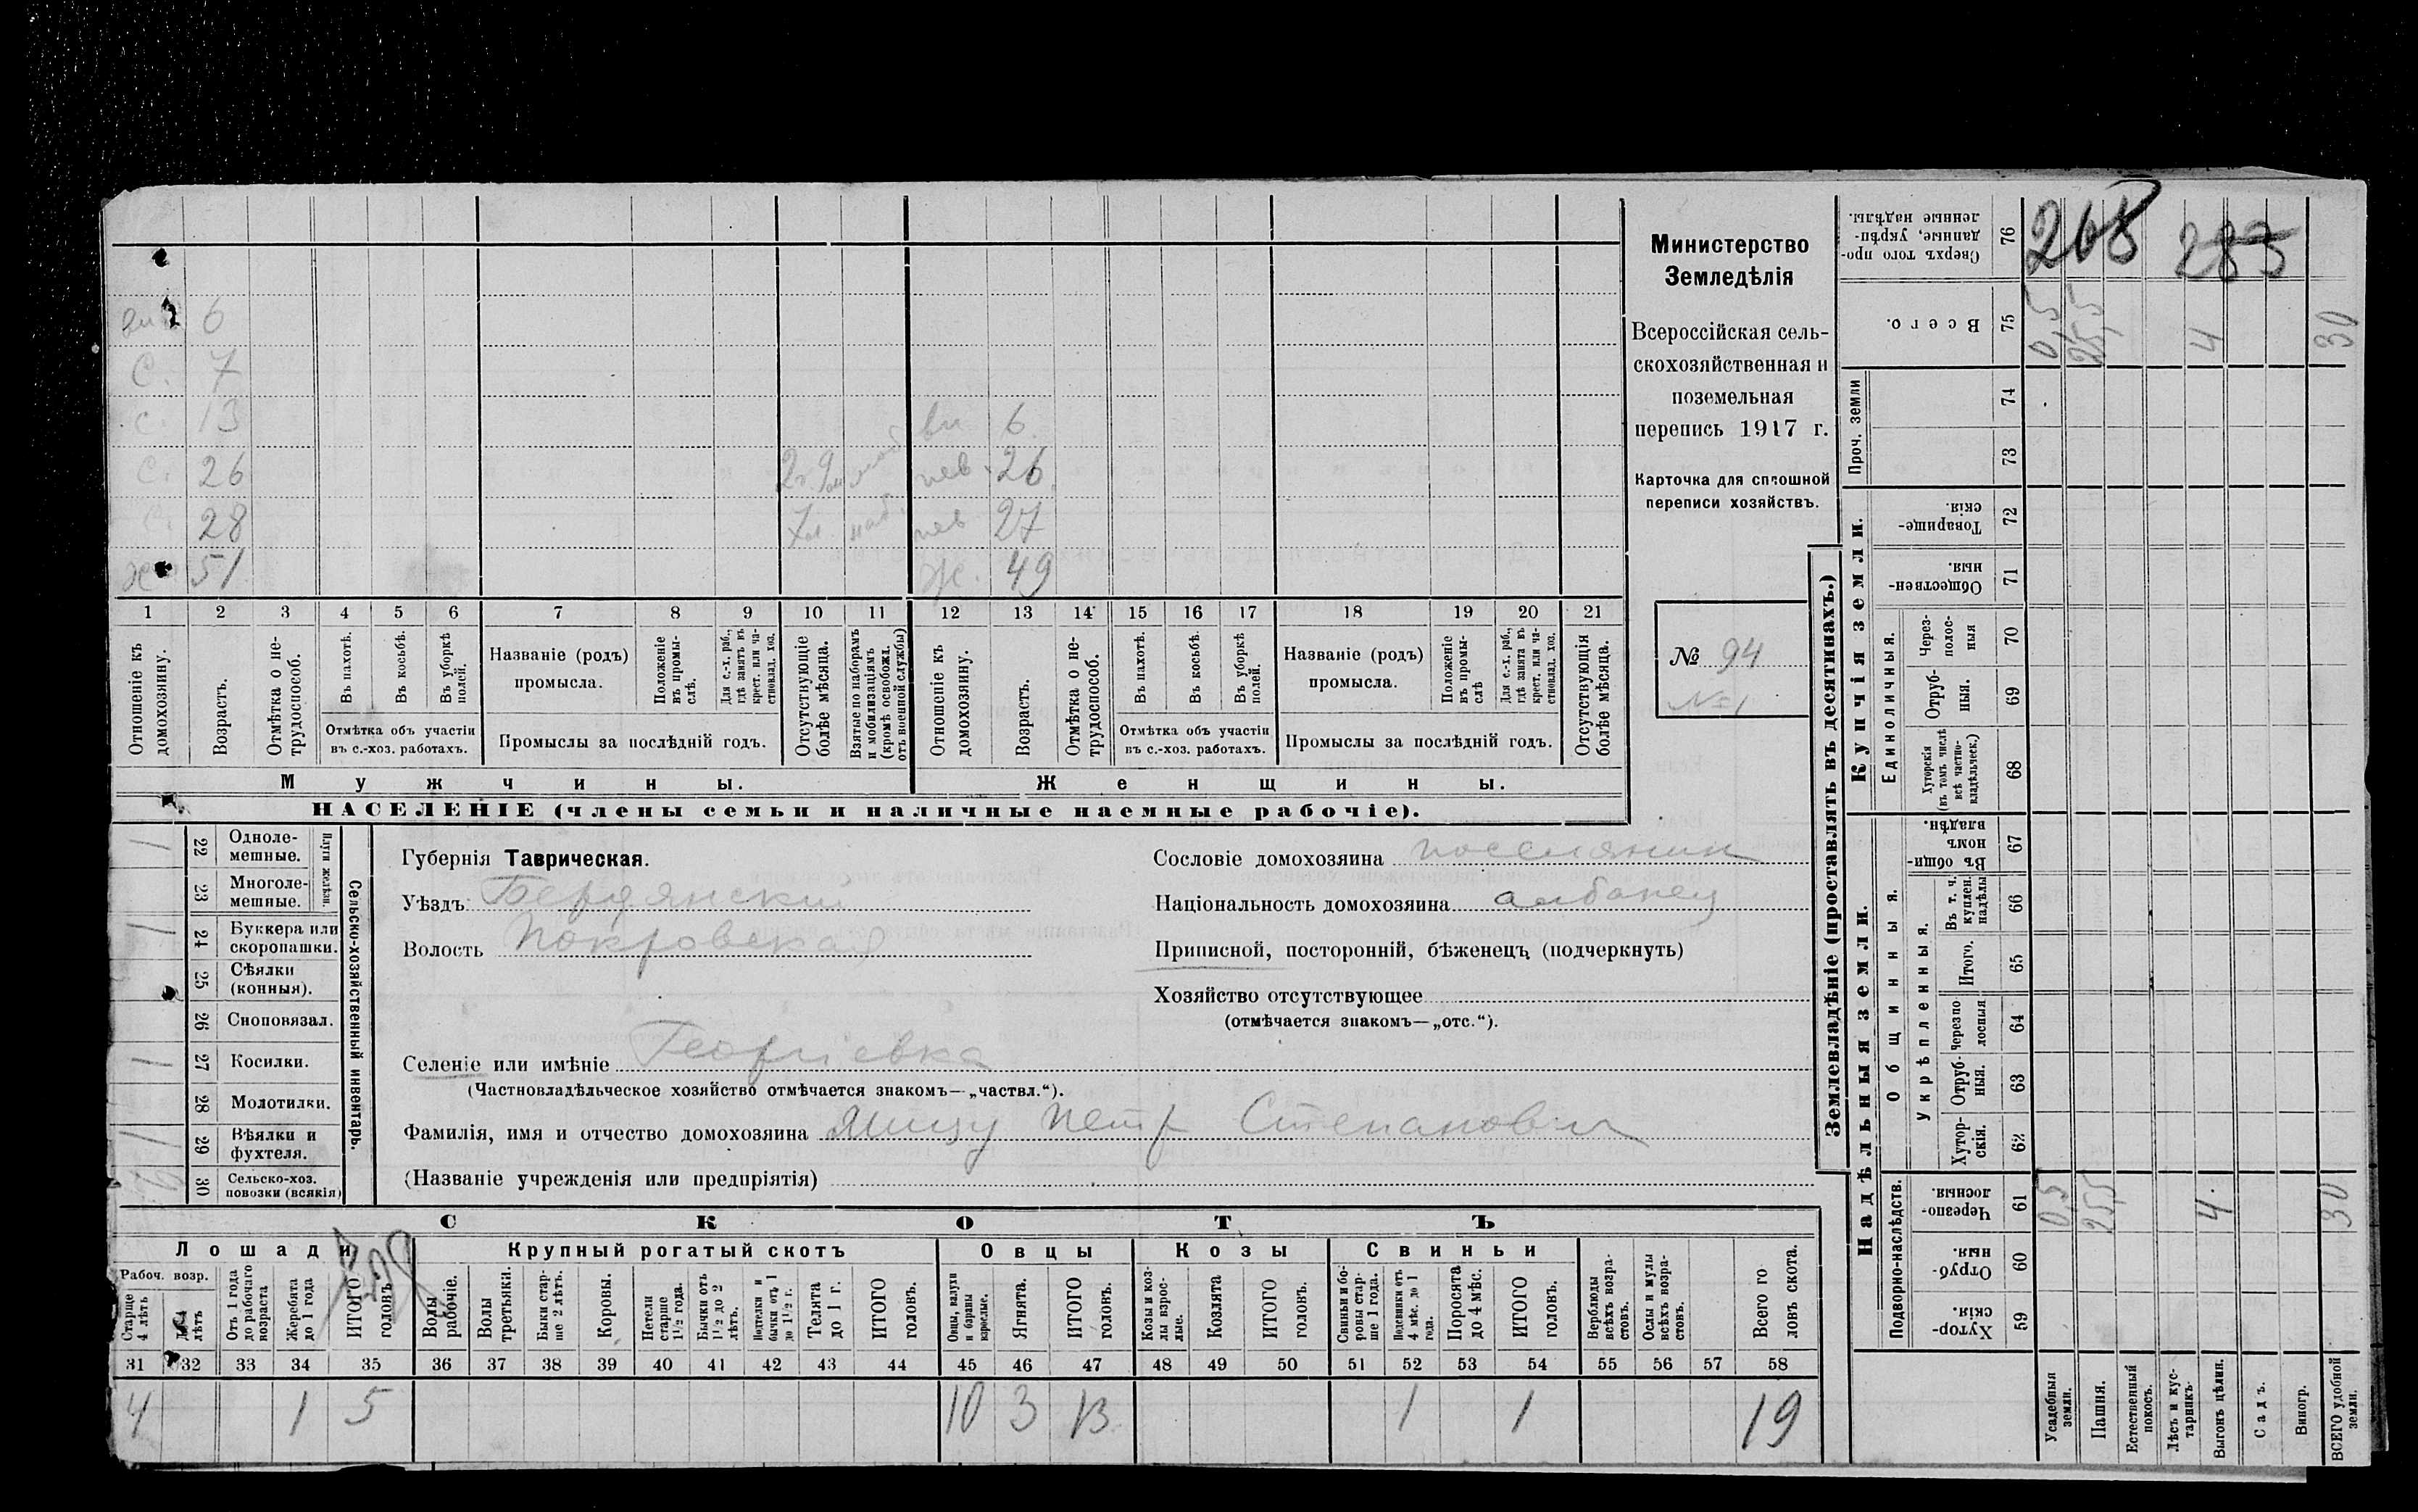 6
С. 7
с. 13 вн 6
с. 26 2 г. 9 м. моб. нев. 26
с. 28 7 м. моб. нев. 27
х 51 ж. 49
1 2 3 4 5 6 7 8 9 10 11 12 13 14 15 16 17 18 19 20 21
Отношеніе къ домохозяину.
Возрастъ.
Отмѣтка о не-трудоспособ.
Въ пахотѣ.
Въ косьбѣ.
Въ уборкѣ полей.
Отмѣтка объ участіи
въ с.-хоз. работахъ.
Названіе (родъ)
промысла.
Положеніе въ промы-слѣ.
Для с.-х. раб., гдѣ занятъ въ крест. или ча-стновлад. хоз.
Промыслы за послѣдній годъ.
Отсутствующіе болѣе мѣсяца.
Взятые по наборамъ и мобилизаціямъ (кромѣ освобожд. отъ военной службы)
Отношеніе къ домохозяину.
Возрастъ.
Отмѣтка о не-трудоспособ.
Въ пахотѣ.
Въ косьбѣ.
Въ уборкѣ полей.
Отмѣтка объ участіи
въ с.-хоз. работахъ.
Названіе (родъ)
промысла.
Положеніе въ промы-слѣ
Для с.-х. раб., гдѣ занята въ крест. или ча-стновлад. хоз.
Промыслы за послѣдній годъ.
Отсутствующія болѣе мѣсяца.
Мужчины. Женщины.
НАСЕЛЕНІЕ (члены семьи и наличные наемные рабочіе).
Министерство
Земледѣлія
Всероссійская сель-
скохозяйственная и
поземельная
перепись 1917 г.
Карточка для сплошной
переписи хозяйствъ.
№ 94
№1
22 Одноле-мешные. 1
23 Многоле-мешные.
Плуги желѣзн.
24 Буккера или скоропашки. 1
25 Сѣялки (конныя).
26 Сноповязал.
27 Косилки. 1
28 Молотилки.
29 Вѣялки и фухтеля. 1
30 Сельско-хоз. повозки (всякія)
Сельско-хозяйственный инвентарь.
Губернія Таврическая.
Уѣздъ Бердянскій
Волость Покровская
Сословіе домохозяина поселянин
Національность домохозяина албанец
Приписной, посторонній, бѣженецъ (подчеркнуть)
Хозяйство отсутствующее
(отмѣчается знакомъ—„отс.“).
Селеніе или имѣніе Георгіевка
(Частновладѣльческое хозяйство отмѣчается знакомъ—„частвл.“).
Фамилія, имя и отчество домохозяина Петр Степанович
(Названіе учрежденія или предпріятія)
СКОТЪ
Лошади Крупный рогатый скотъ Овцы Козы Свиньи
Рабоч. возр.
Старше 4 лѣтъ
лѣтъ
Отъ 1 года до рабочаго возраста
Жеребята до 1 года
ИТОГО головъ
Волы рабочіе.
Волы третьяки.
Быки стар-ше 2 лѣтъ.
Коровы.
Нетели старше 1½ года.
Бычки отъ 1½ до 2 лѣтъ.
Подтелки и бычки отъ 1 до 1½ г.
Телята до 1 г.
ИТОГО головъ.
Овцы, валухи и бараны взрослые.
Ягнята.
ИТОГО головъ.
Козы и коз-лы взрос-лые.
Козлята
ИТОГО головъ.
Свиньи и бо-ровы стар-ше 1 года.
Подсвинки отъ 4 мѣс. до 1 года.
Поросята до 4 мѣс.
ИТОГО головъ.
Верблюды всѣхъ возра-стовъ.
Ослы и мулы всѣхъ возра-стовъ.
Всего го ловъ скота.
31 32 33 34 35 36 37 38 39 40 41 42 43 44 45 46 47 48 49 50 51 52 53 54 55 56 57 58
4 1 5 10 3 13 1 1 19
Землевладѣніе (проставлять въ десятинахъ.)
Купчія земли.
Надѣльныя земли.
Сверхъ того про-данные, укрѣп-ленные надѣлы. 76
268 283
Всего. 75 0,5 25,5 4 30
Проч. земли
74
73
Товарище-скія 72
Обществен-ныя. 71
Единоличныя.
Через-полос-ныя 70
Отруб-ныя. 69
Хуторскія (въ томъ числѣ всѣ частно-владѣльческ.) 68
Общинныя.
Въ общи-номъ владѣн. 67
Укрѣпленныя.
Въ т. ч. куплен. надѣлы 66
Итого. 65
Черезпо-лосныя 64
Отруб-ныя. 63
Хутор-скія. 62
Подворно-наслѣдств.
Черезпо-лосныя. 61 0,5 25,5 4. 30
Отруб-ныя. 60
Хутор-скія. 59
Усадебныя земли.
Пашня.
Естественный покосъ.
Лѣсъ и кус-тарникъ
Выгонъ цѣлин.
Садъ.
Виногр.
ВСЕГО удобной земли.